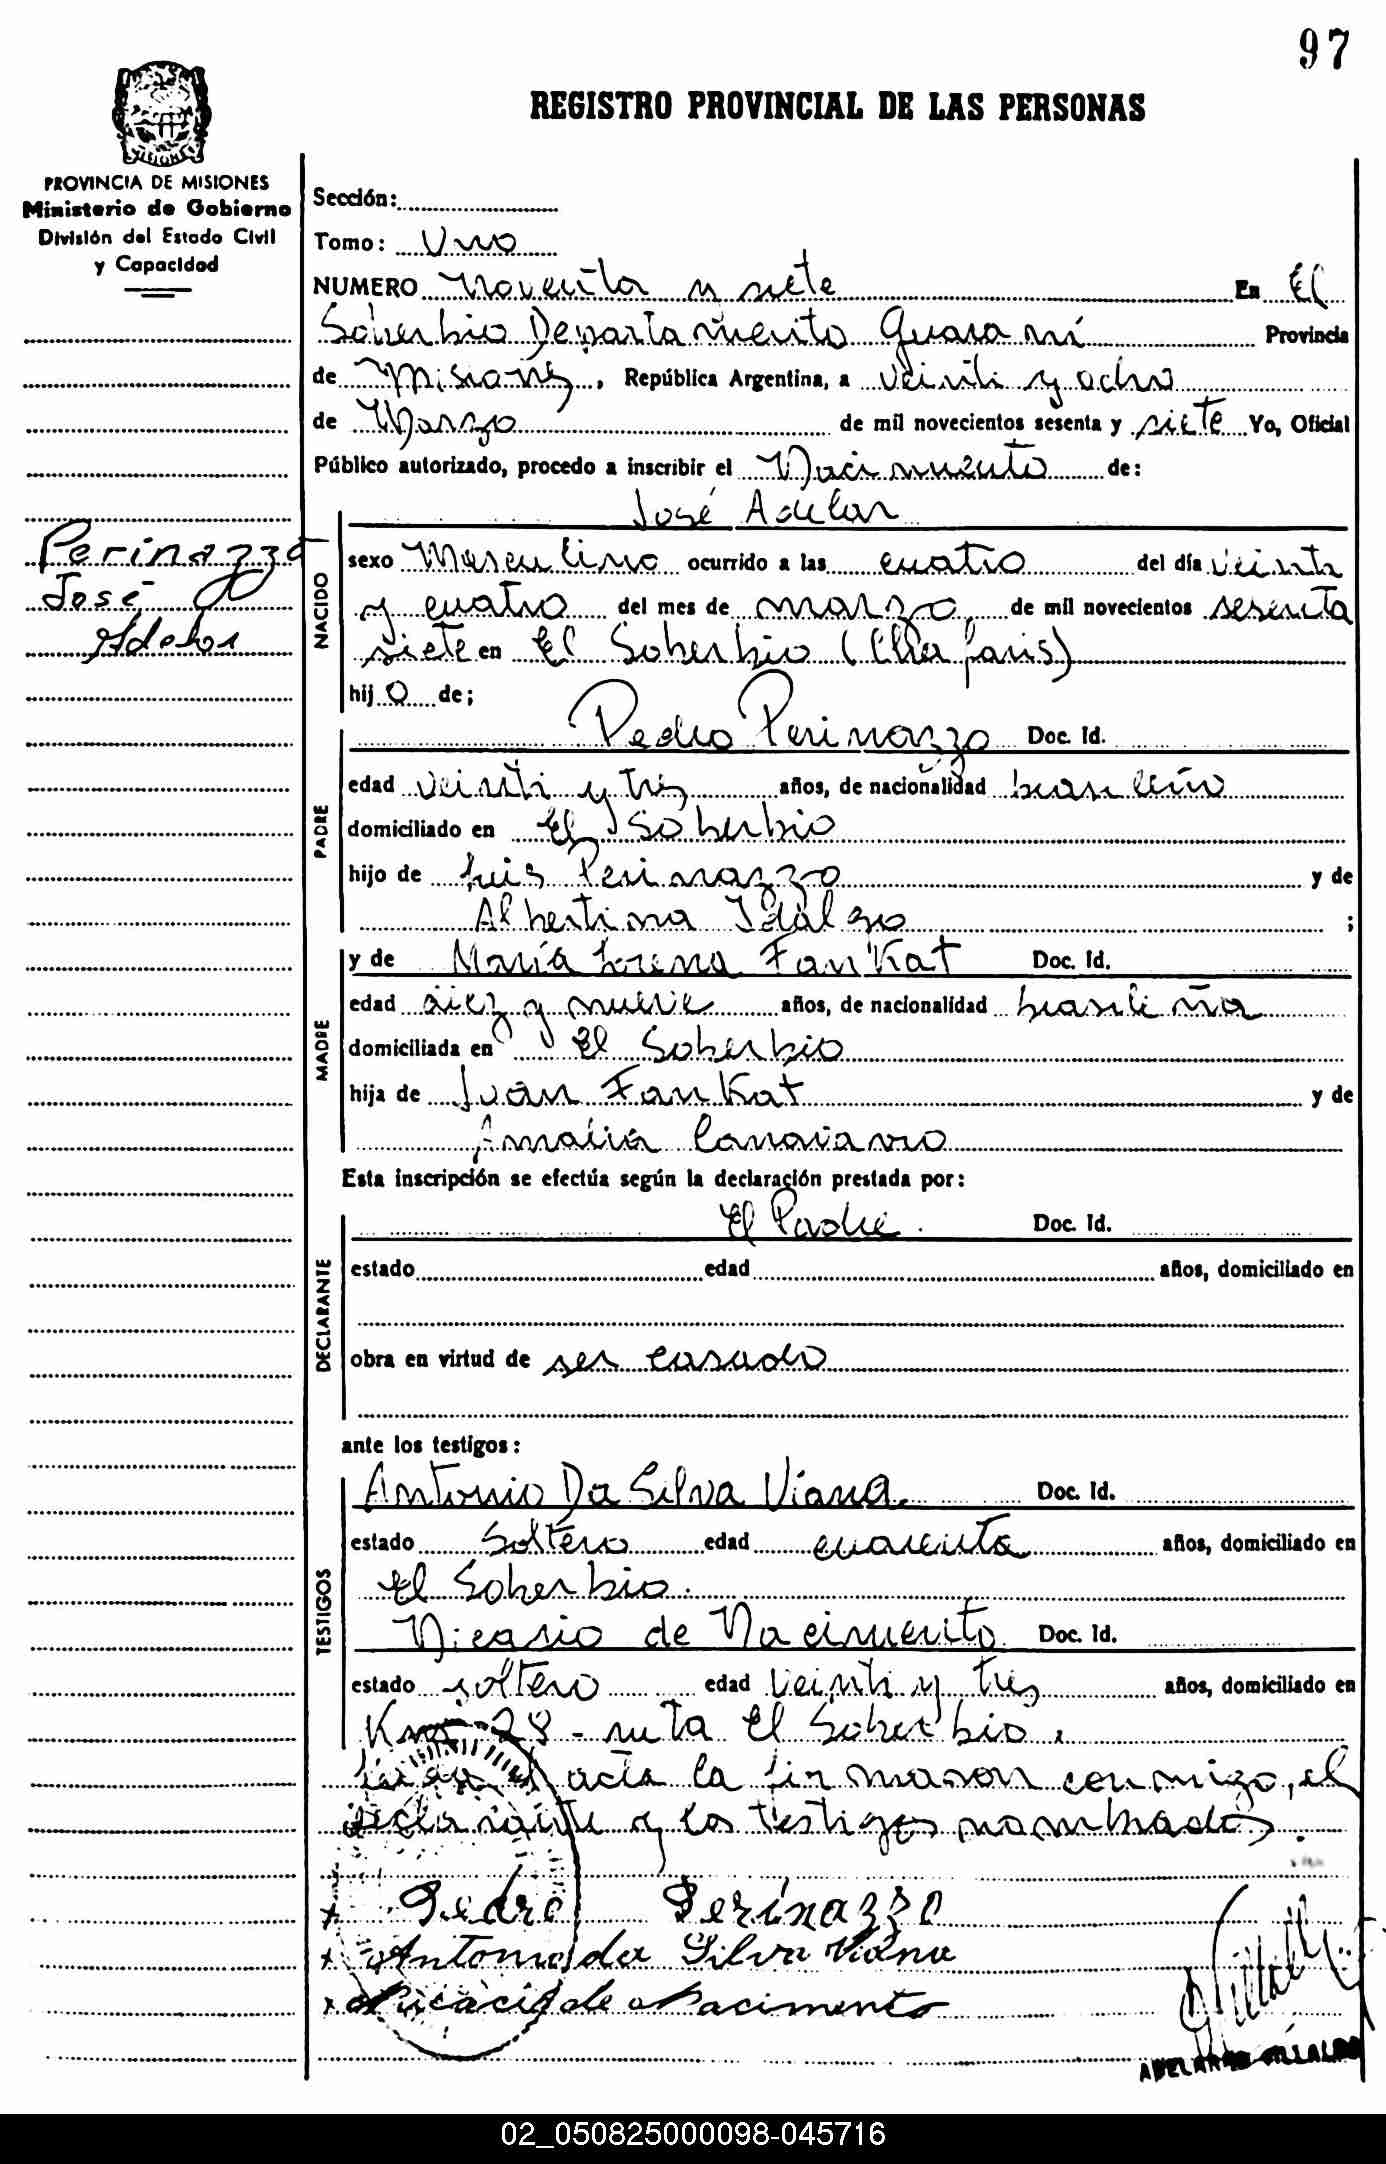 97
REGISTRO PROVINCIAL DE LAS PERSONAS
PROVINCIA DE MISIONES
Ministerio de Gobierno
División del Estado Civil
y Capacidad
Perinazzo
José
Adelar
Sección:
Tomo: Uno
NUMERO Noventa y siete En El
Soberbio Departamento Guaraní Provincia
de Misiones, República Argentina, a veinti y ocho
de Marzo de mil novecientos sesenta y siete Yo, Oficial
Público autorizado, procedo a inscribir el Nacimiento de:
José Adelar
NACIDO
sexo Masculino ocurrido a las cuatro del día veinti
y cuatro del mes de marzo de mil novecientos sesenta
siete en El Soberbio
hijo de;
PADRE
Pedro Perinazzo Doc. Id.
edad veinti y tres años, de nacionalidad brasileño
domiciliado en El Soberbio
hijo de Luis Perinazzo y de
Albertina Idalgo ;
MADRE
y de María Lorena FanKat Doc. Id.
edad diez y nueve años, de nacionalidad brasileña
domiciliada en El Soberbio
hija de Juan FanKat y de
Amalia
Esta inscripción se efectúa según la declaración prestada por:
DECLARANTE
El Padre. Doc. Id.
estado edad años, domiciliado en
obra en virtud de ser casado
ante los testigos:
TESTIGOS
Antonio Da Silva Viana. Doc. Id.
estado Soltero edad cuarenta años, domiciliado en
El Soberbio.
Nicasio de Nacimiento Doc. Id.
estado soltero edad veinti y tres años, domiciliado en
Km 28 - ruta El Soberbio.
acta la firmaron conmigo, el
declarante y los testigos nombrados.
x Pedro Perinazzo
x Antonio da Silva Viana
x de Nacimento
02_050825000098-045716